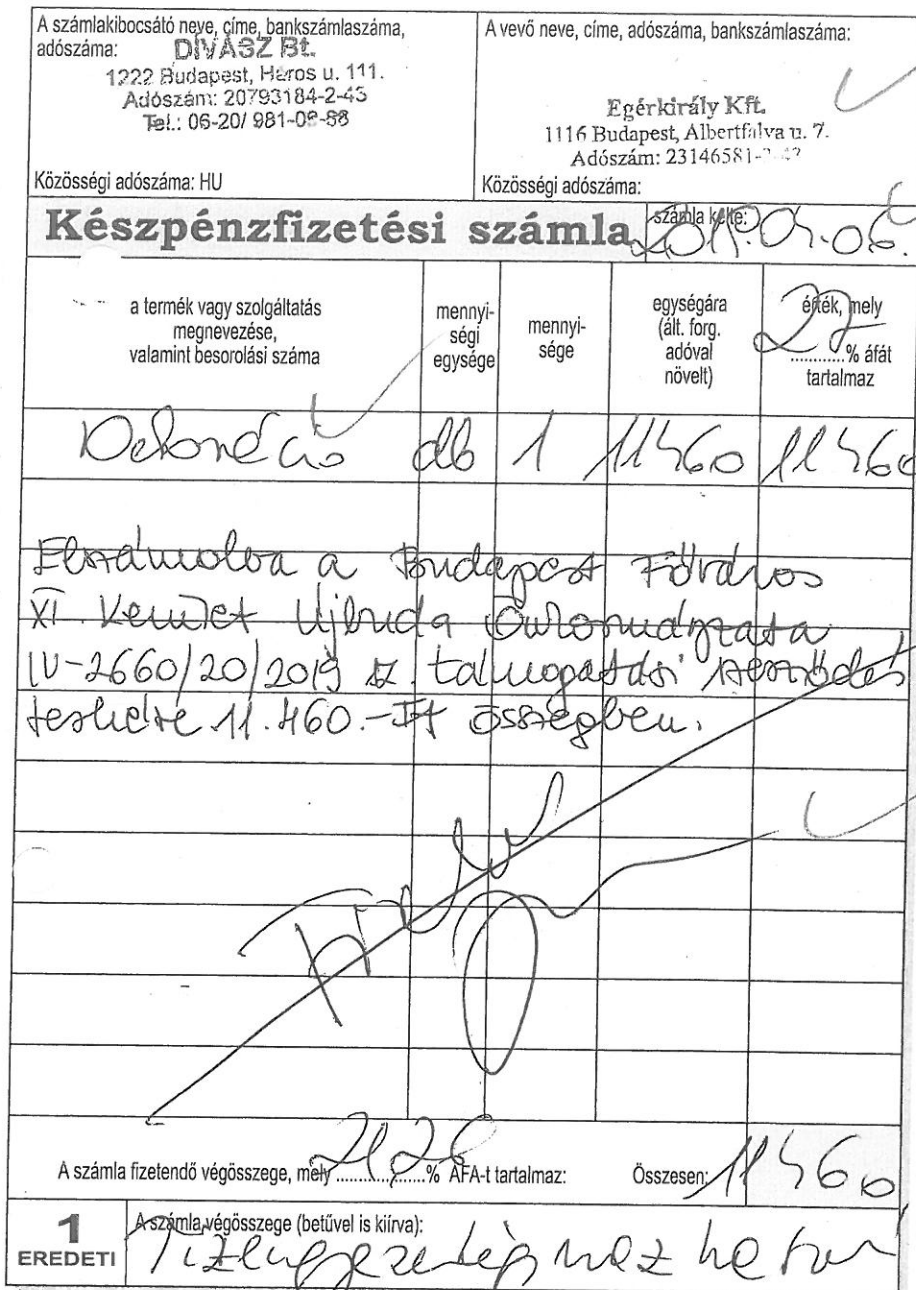 A számlakibocsátó neve, címe, bankszámlaszáma,
adószáma:
DIVÁSZ Bt.
1222 Budapest, Háros u. 111.
Adószám: 20793184-2-43
Tel.: 06-20/ 981-08-88
Közösségi adószáma: HU
A vevő neve, címe, adószáma, bankszámlaszáma:
Egérkirály Kft.
1116 Budapest, Albertfalva u. 7.
Adószám: 23146581-
Közösségi adószáma:
Készpénzfizetési számla
számla kelte:
a termék vagy szolgáltatás
megnevezése,
valamint besorolási száma
mennyi-
ségi
egysége
mennyi-
sége
egységára
(ált. forg.
adóval
növelt)
érték, mely
27 % áfát
tartalmaz
Dekoráció db 1 11460 11460
Elszámolva a Budapest Főváros
XI. Kerület Újbuda Önkormányzata
IV-2660/20/2019 sz. támogatási szerződés
terhére 11.460.-Ft összegben.
A számla fizetendő végösszege, mely 21,26 % ÁFA-t tartalmaz: Összesen: 11460
1
EREDETI
A számla végösszege (betűvel is kiírva):
Tizenegyezernégyszázhatvan